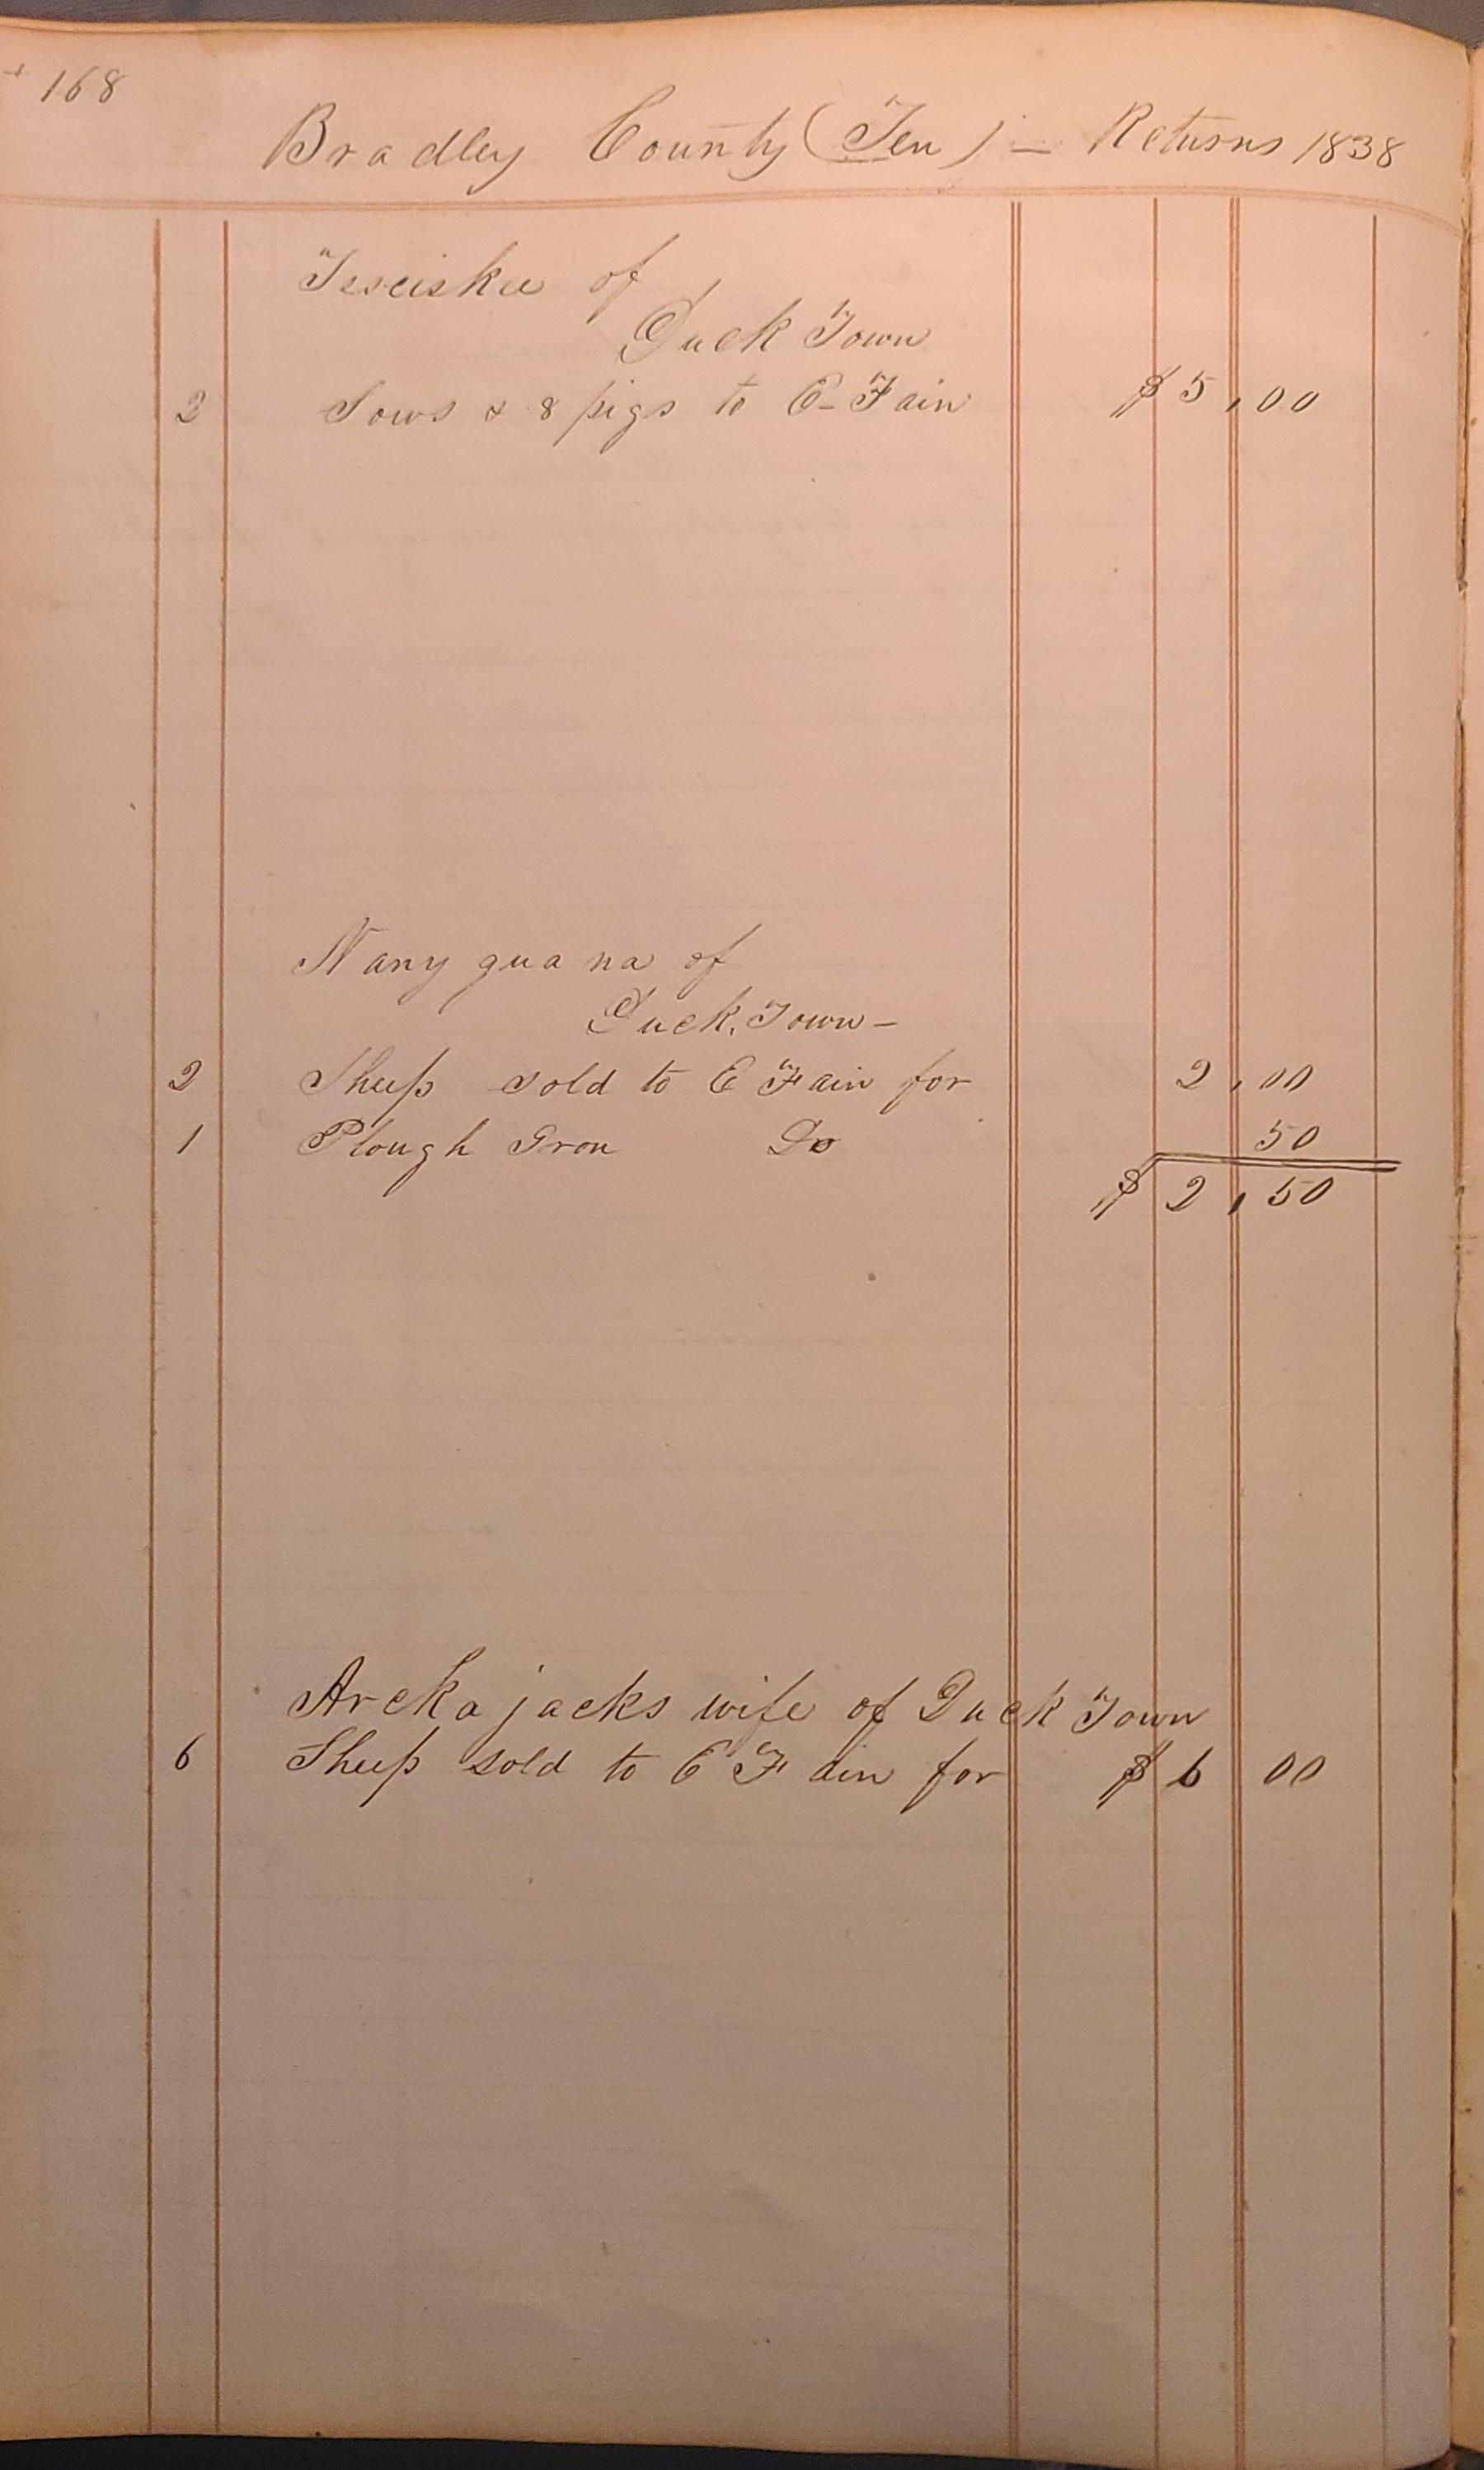 168
Bradley County (Ten) — Returns 1838
Tesciskee of
Duck Town
2 Sows & 8 pigs to E Fain $5,00
Nany gua na of
Duck Town —
2 Sheep sold to E Fain for 2,00
1 Plough Iron Do 50
$2,50
Archa jacks wife of Duck Town
6 Sheep sold to E Fain for $6 00